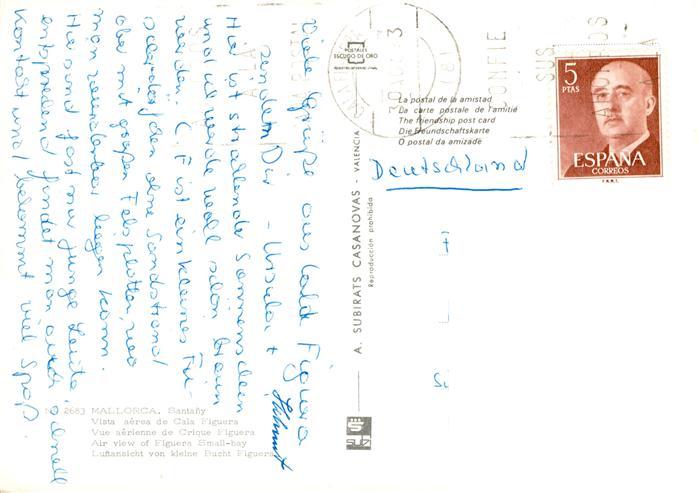 Viele Grüße aus Cala Figuera
senden Dir - Ursula +
Helmut
Hier ist strahlender Sonnenschein
und ich werde wohl schön braun
werden. C. F. ist ein kleines
ohne Sandstrand
aber mit großen Felsplatten, wo
man wunderbar liegen kann.
Hier sind fast nur junge Leute,
entsprechend findet man auch schnell
Kontakt und bekommt viel Spaß.
Nº 2683 MALLORCA. Santañy
Vista aérea de Cala Figuera
Vue aérienne de Crique Figuera
Air view of Figuera Small-bay
Luftansicht von kleine Bucht Figuera
POSTALES
ESCUDO DE ORO
A. SUBIRATS CASANOVAS - VALENCIA
Reproducción prohibida
La postal de la amistad
La carte postale de l'amitié
The friendship post card
Die Freundschaftskarte
O postal da amizade
CONFIE
SUS
5
PTAS
ESPAÑA
CORREOS
F.N.M.T.
Deutschland